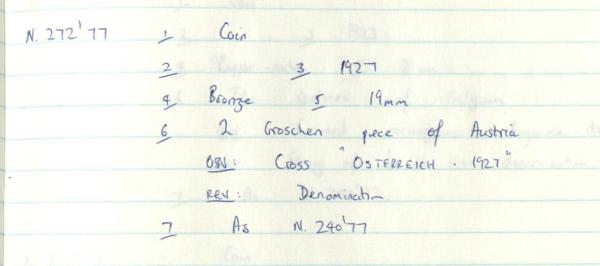 N. 272'77 1 Coin
2 3 1927
4 Bronze 5 19mm
6 2 Groschen piece of Austria
OBV: Cross "ÖSTERREICH · 1927"
REV: Denomination
7 As N. 240'77